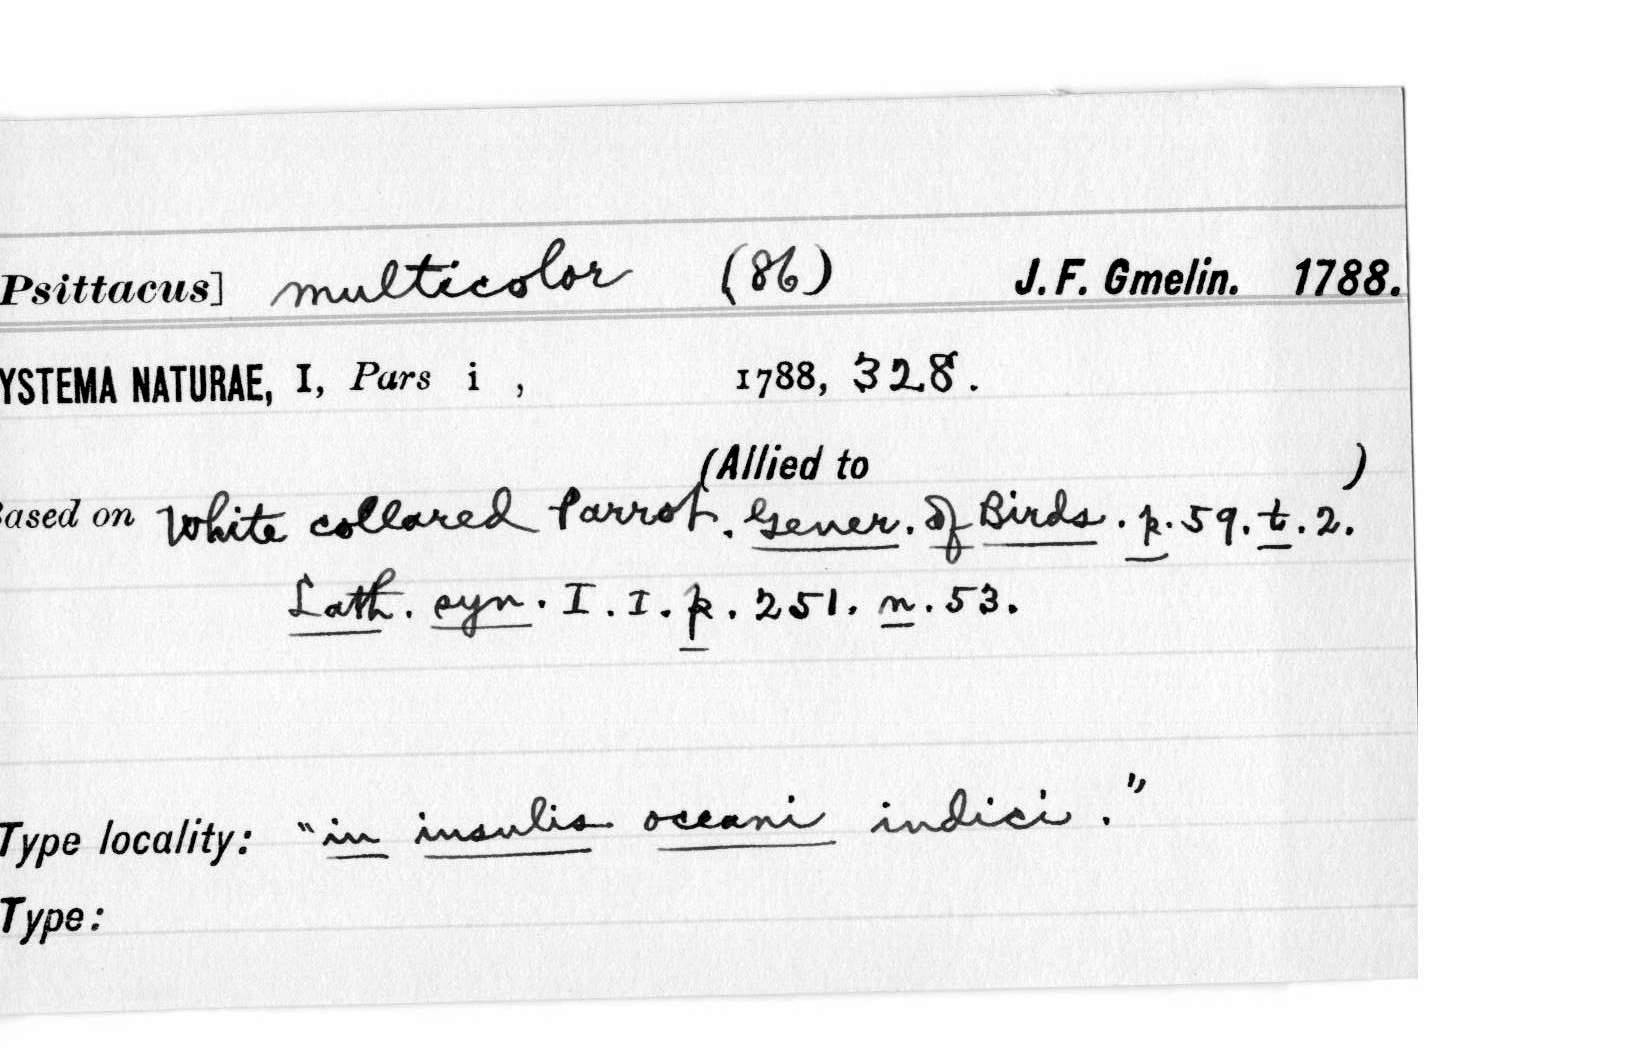 Psittacus] multicolor (86) J. F. Gmelin. 1788.
YSTEMA NATURAE, I, Pars i , 1788, 328.
(Allied to )
ased on White collared Parrot. Gener. of Birds. p. 59. t. 2.
Lath. syn. I. I. p. 251. n. 53.
Type locality: "in insulis oceani indici."
Type: